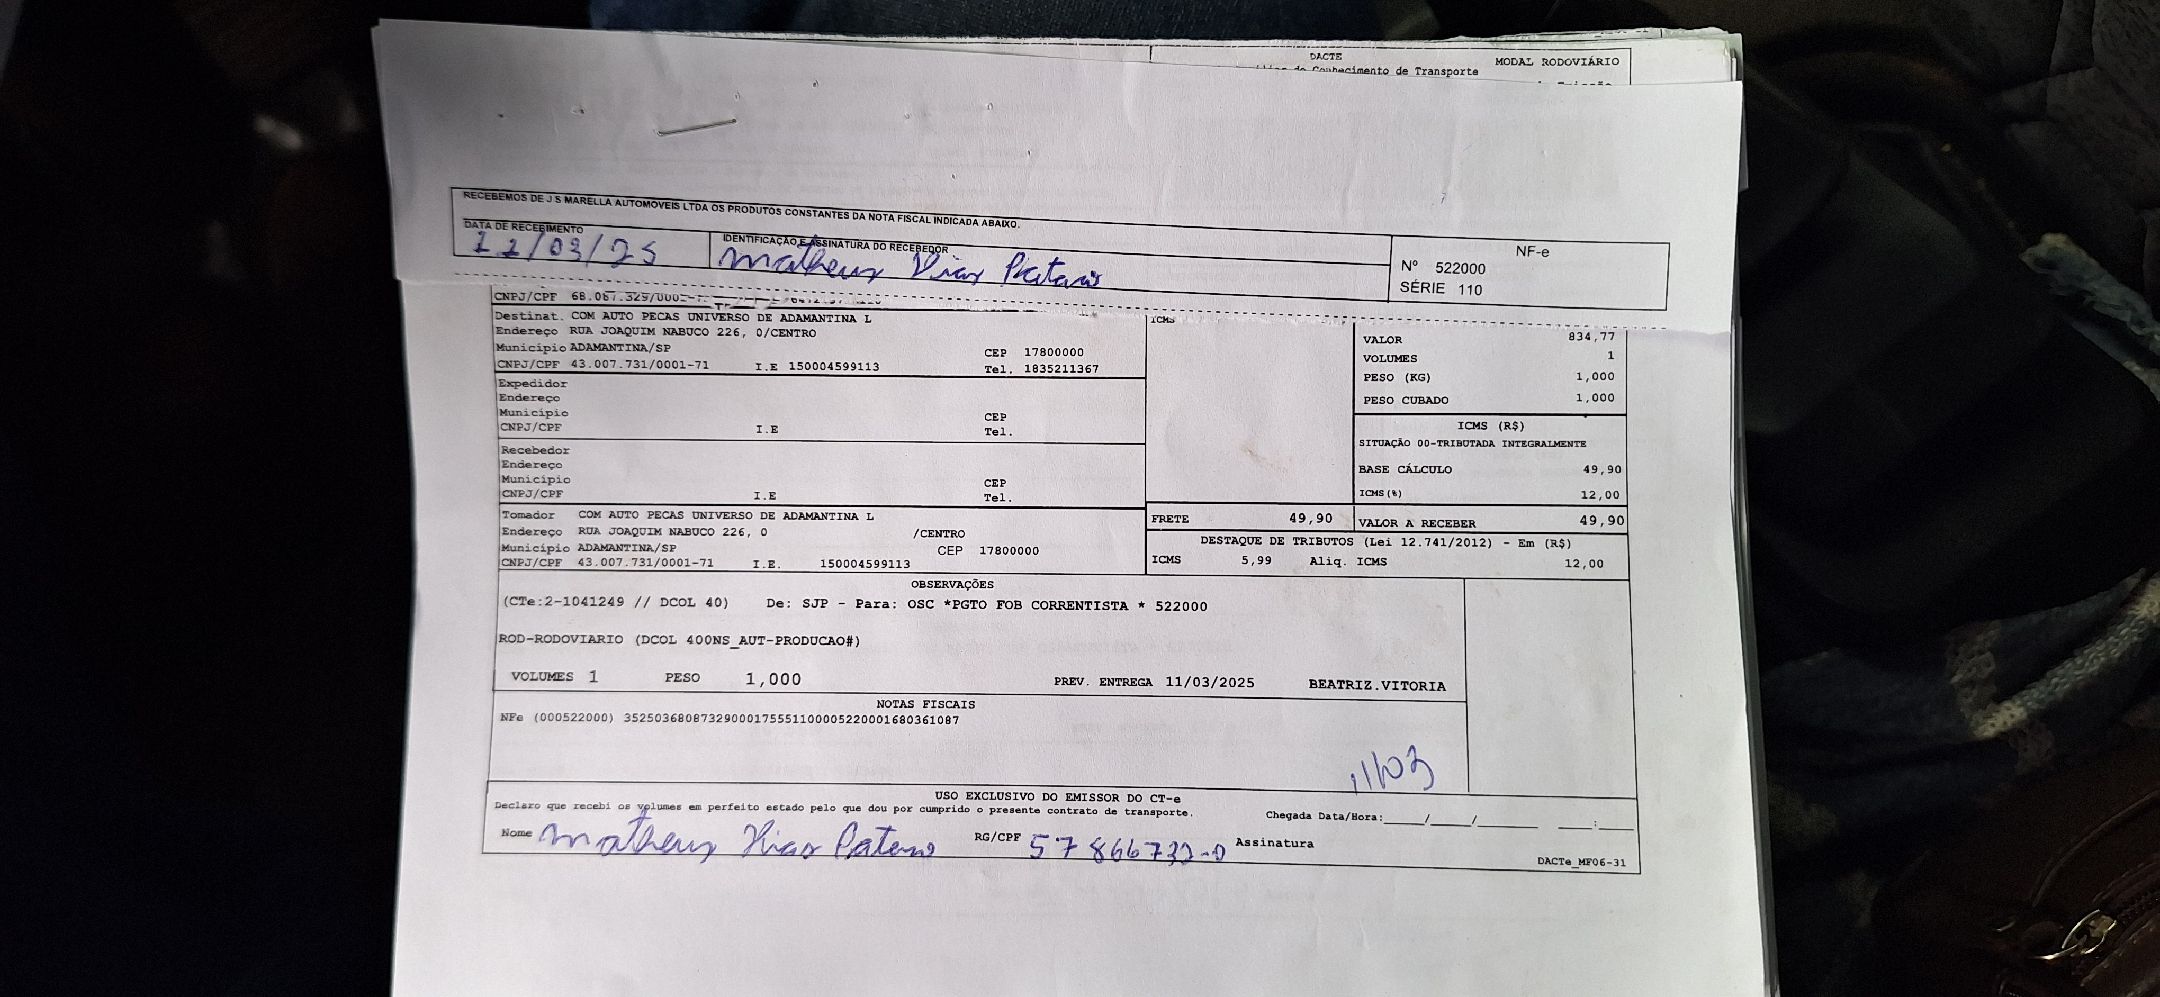 DACTE
MODAL RODOVIÁRIO
de Conhecimento de Transporte
RECEBEMOS DE J S MARELLA AUTOMOVEIS LTDA OS PRODUTOS CONSTANTES DA NOTA FISCAL INDICADA ABAIXO.
DATA DE RECEBIMENTO
IDENTIFICAÇÃO E ASSINATURA DO RECEBEDOR
NF-e
11/03/25
Matheus Dias
Nº 522000
SÉRIE 110
CNPJ/CPF
Destinat. COM AUTO PECAS UNIVERSO DE ADAMANTINA L
Endereço RUA JOAQUIM NABUCO 226, 0/CENTRO
Município ADAMANTINA/SP CEP 17800000
CNPJ/CPF 43.007.731/0001-71 I.E 150004599113 Tel. 1835211367
ICMS
VALOR 834,77
VOLUMES 1
PESO (KG) 1,000
PESO CUBADO 1,000
Expedidor
Endereço
Município CEP
CNPJ/CPF I.E Tel.
ICMS (R$)
SITUAÇÃO 00-TRIBUTADA INTEGRALMENTE
BASE CÁLCULO 49,90
ICMS(%) 12,00
Recebedor
Endereço
Município CEP
CNPJ/CPF I.E Tel.
Tomador COM AUTO PECAS UNIVERSO DE ADAMANTINA L
Endereço RUA JOAQUIM NABUCO 226, 0 /CENTRO
Município ADAMANTINA/SP CEP 17800000
CNPJ/CPF 43.007.731/0001-71 I.E. 150004599113
FRETE 49,90 VALOR A RECEBER 49,90
DESTAQUE DE TRIBUTOS (Lei 12.741/2012) - Em (R$)
ICMS 5,99 Aliq. ICMS 12,00
OBSERVAÇÕES
(CTe:2-1041249 // DCOL 40) De: SJP - Para: OSC *PGTO FOB CORRENTISTA * 522000
ROD-RODOVIARIO (DCOL 400NS_AUT-PRODUCAO#)
VOLUMES 1 PESO 1,000 PREV. ENTREGA 11/03/2025 BEATRIZ.VITORIA
NOTAS FISCAIS
NFe (000522000) 35250368087329000175551100005220001680361087
11/03
USO EXCLUSIVO DO EMISSOR DO CT-e
Declaro que recebi os volumes em perfeito estado pelo que dou por cumprido o presente contrato de transporte.
Chegada Data/Hora:____/____/______ ___:___
Nome Matheus Dias RG/CPF 57866732-0 Assinatura
DACTe_MF06-31